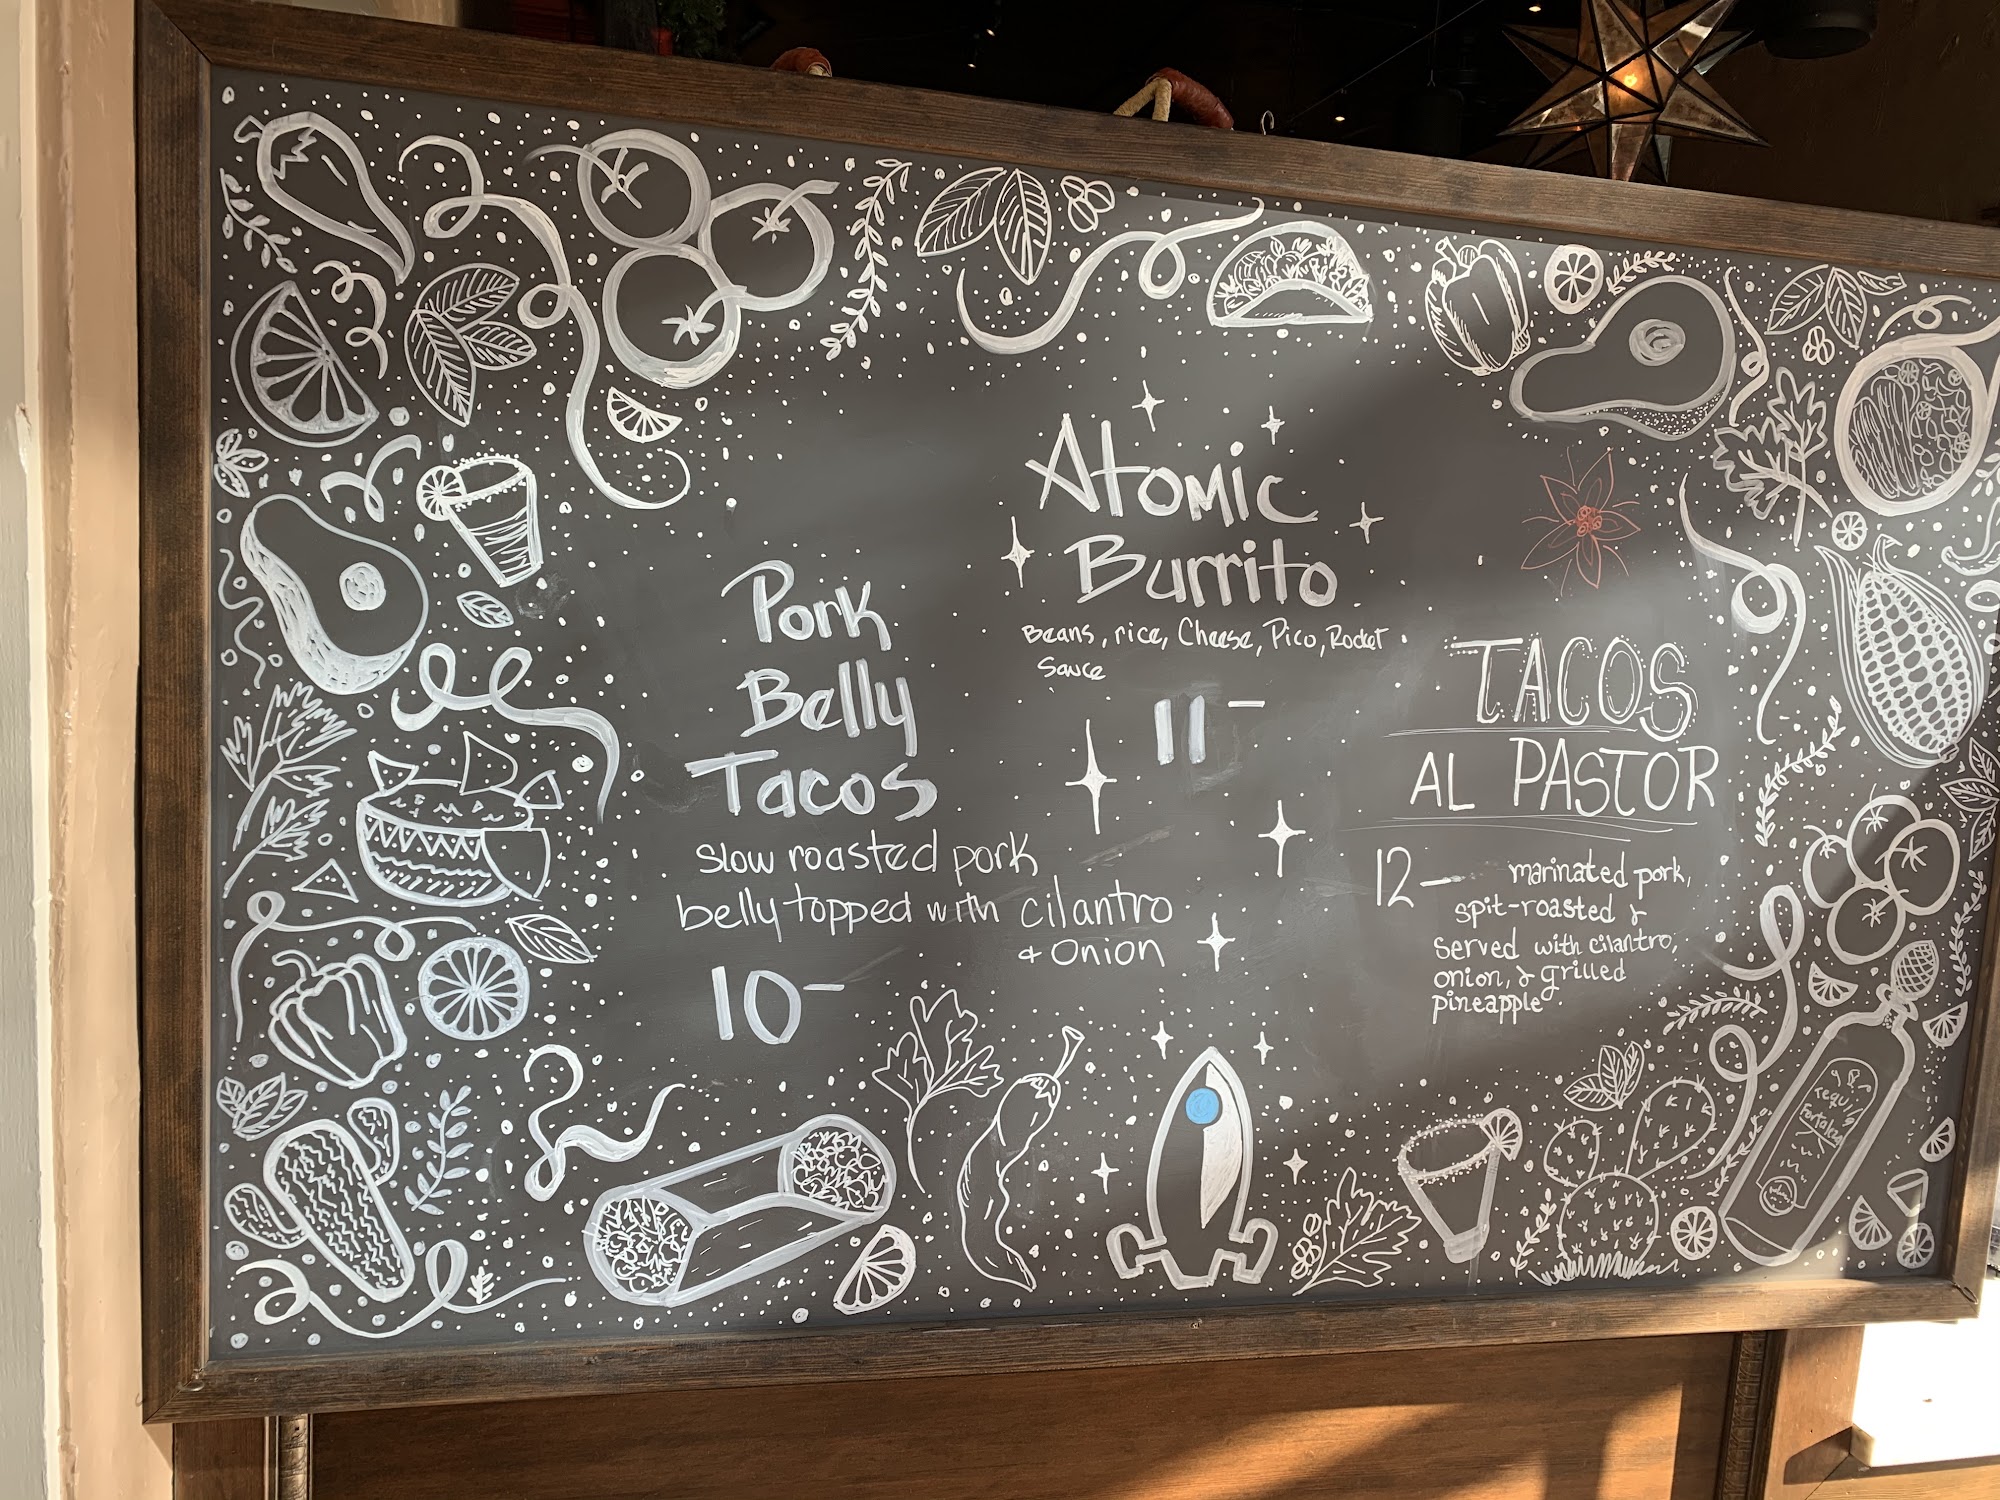 Pork
Belly
Tacos
slow roasted pork
belly topped with cilantro
& onion
10-
Atomic
Burrito
Beans, rice, Cheese, Pico, Rocket
Sauce
11-
TACOS
AL PASTOR
12— marinated pork,
spit-roasted &
served with cilantro,
onion, & grilled
pineapple
Tequila
Fortaleza